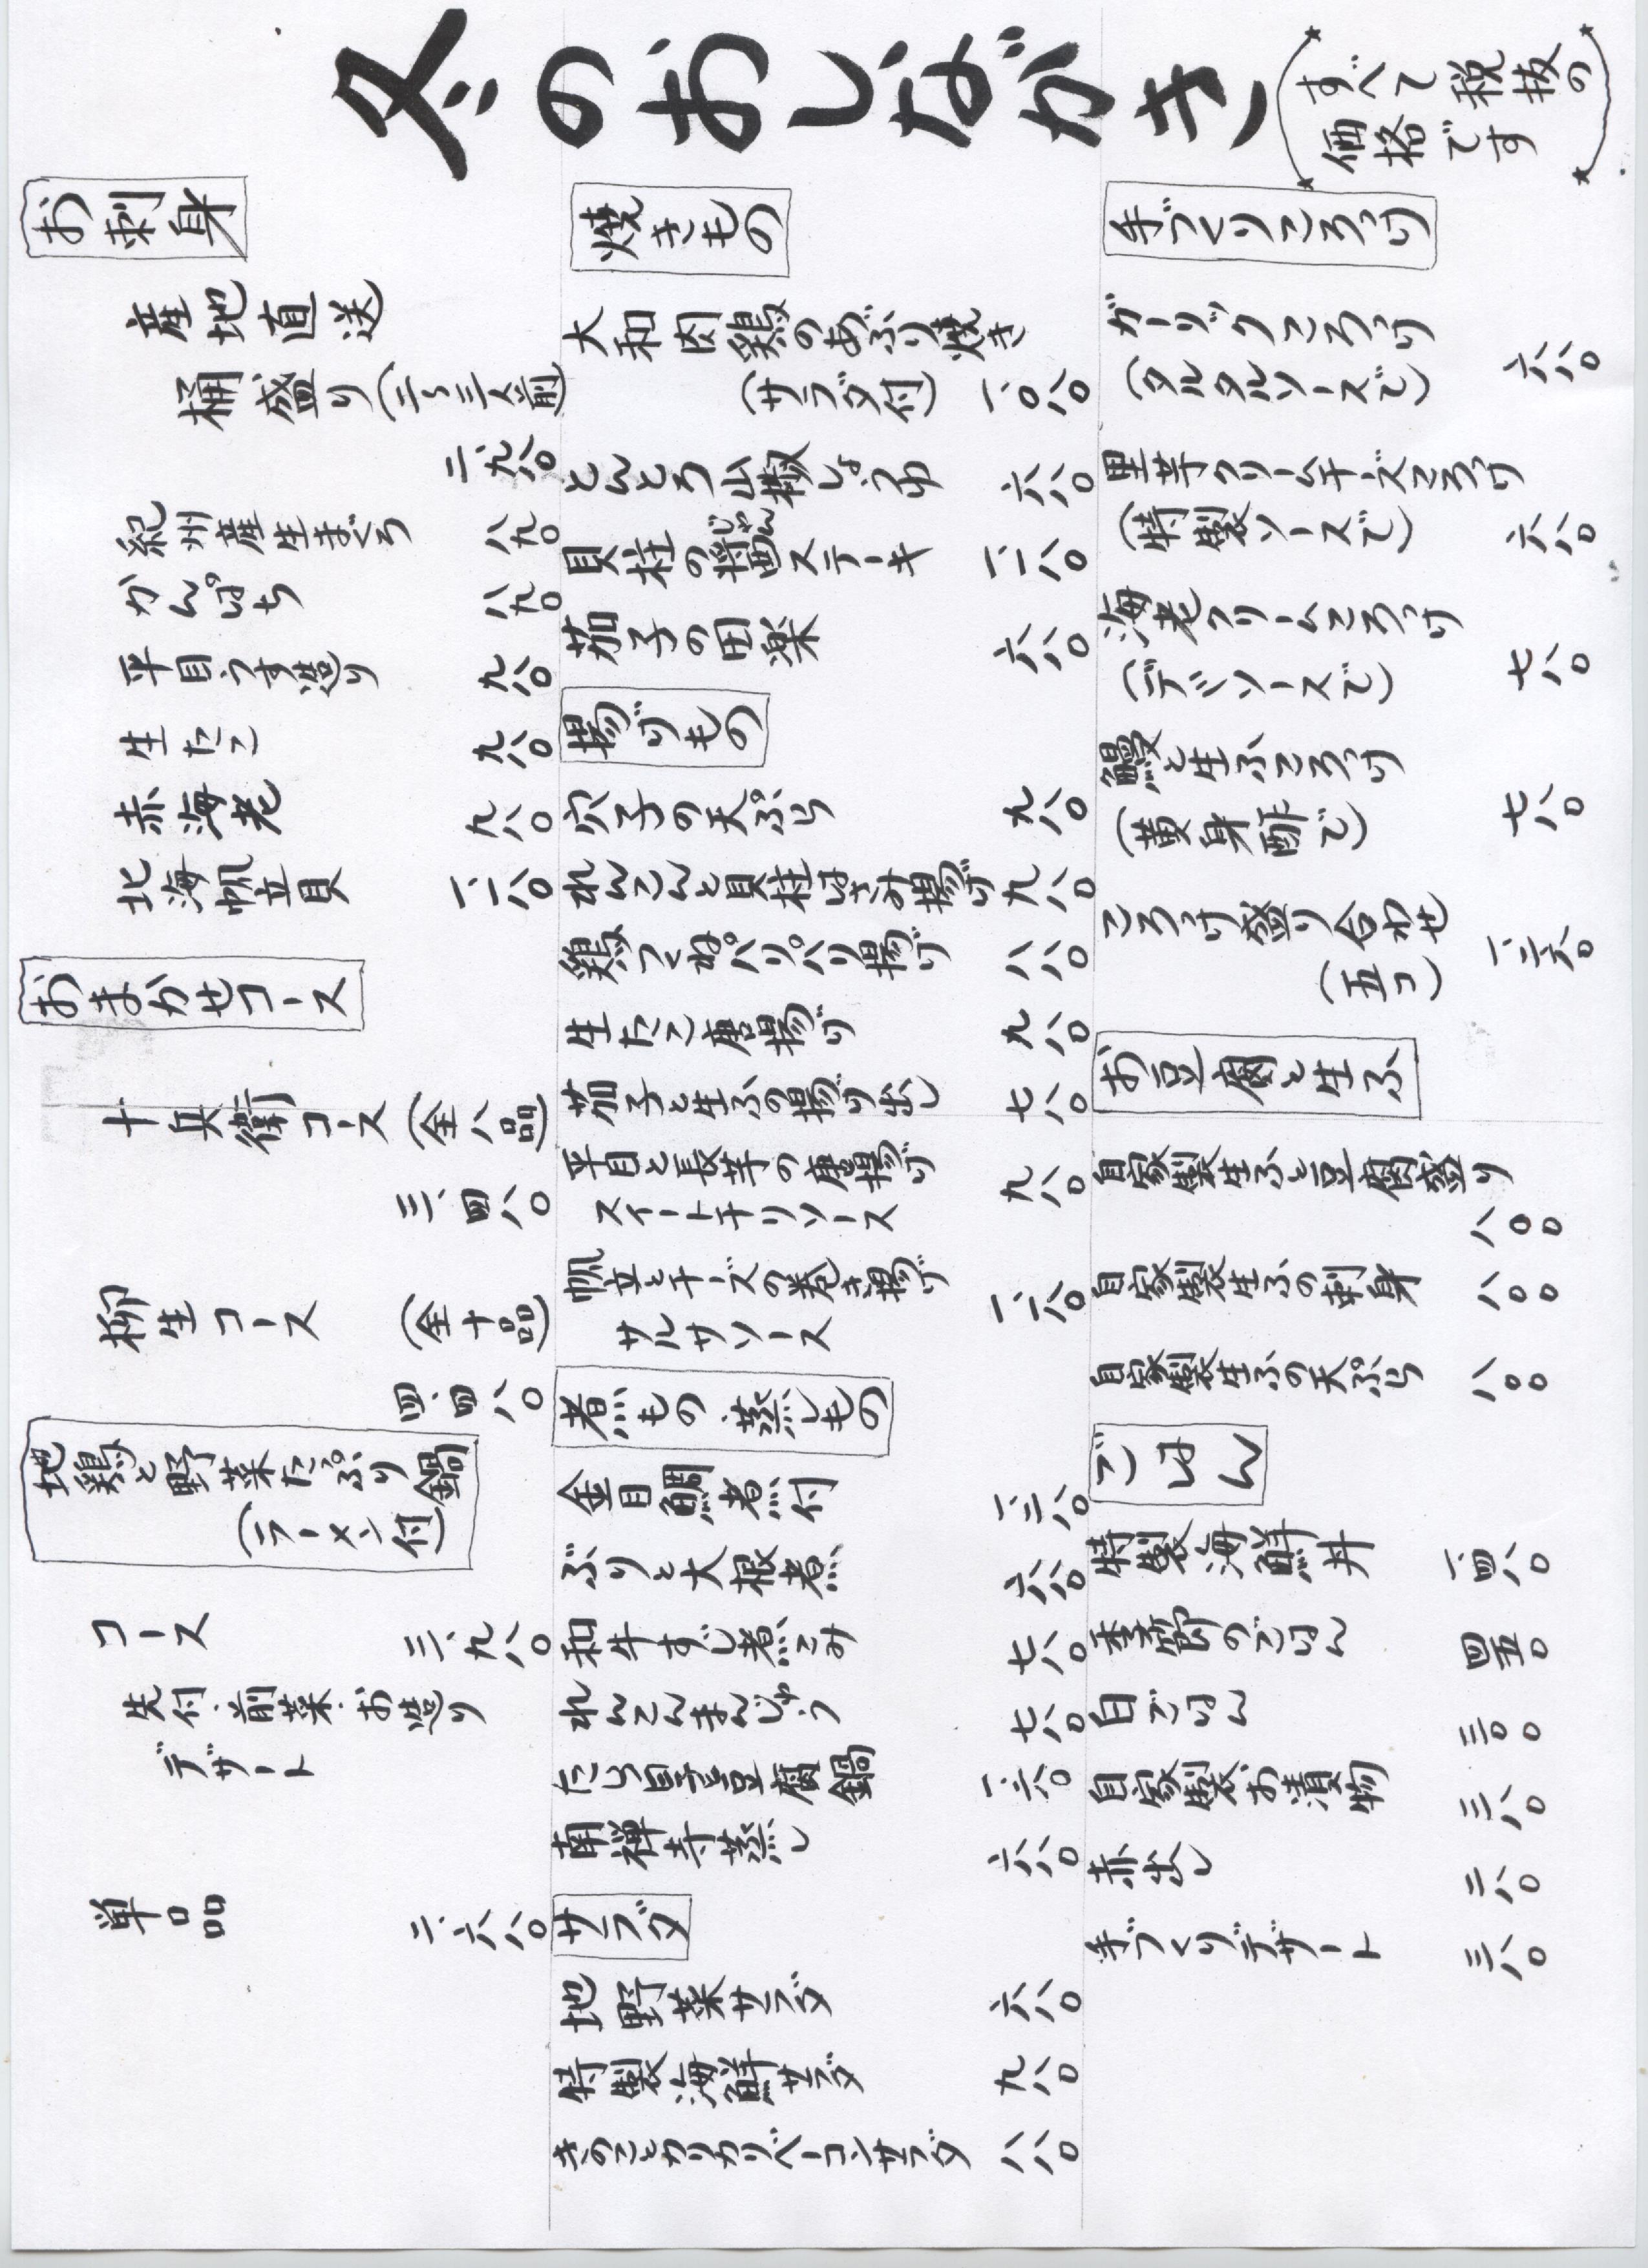 冬のおしながき
(すべて税抜の
価格です)
お刺身
産地直送
桶盛り(二〜三人前)
二、九八〇
紀州産生まぐろ 八九〇
かんぱち 八九〇
平目うす造り 九八〇
生たこ 九八〇
赤海老 九八〇
北海帆立貝 一、二八〇
おまかせコース
十兵衛コース (全八品)
三、四八〇
柳生コース (全十品)
四、四八〇
地鶏と野菜たっぷり鍋
(ラーメン付)
コース 三、九八〇
先付・前菜・お造り
デザート
単品 二、六八〇
焼きもの
大和肉鶏のあぶり焼き
(サラダ付) 一、〇八〇
とんとろ山椒しょうゆ 六八〇
貝柱の醤ステーキ 一、二八〇
じゃん
茄子の田楽 六八〇
揚げもの
穴子の天ぷら 九八〇
れんこんと貝柱はさみ揚げ 九八〇
鶏つくねパリパリ揚げ 八八〇
生たこ唐揚げ 九八〇
茄子と生ふの揚げ出し 七八〇
平目と長芋の唐揚げ 九八〇
スイートチリソース
帆立とチーズの巻き揚げ 一、二八〇
サルサソース
煮もの・蒸しもの
金目鯛煮付 一、二八〇
ぶりと大根煮 六八〇
和牛すじ煮こみ 七八〇
れんこんまんじゅう 七八〇
たら白子豆腐鍋
南禅寺蒸し 六八〇
サラダ
地野菜サラダ 六八〇
特製海鮮サラダ 九八〇
きのことカリカリベーコンサラダ 八八〇
手づくりころっけ
ガーリックころっけ 六八〇
(タルタルソースで)
里芋クリームチーズころっけ
(特製ソースで) 六八〇
海老クリームころっけ 七八〇
(デミソースで)
鰻と生ふころっけ 七八〇
(黄身酢で)
ころっけ盛り合わせ
(五コ)
お豆腐と生ふ
自家製生ふと豆腐盛り
八〇〇
自家製生ふの刺身 八〇〇
自家製生ふの天ぷら 八〇〇
ごはん
特製海鮮丼 一、四八〇
季節のごはん 四五〇
白ごはん 三〇〇
自家製お漬物 三八〇
赤出し 二八〇
手づくりデザート 三八〇